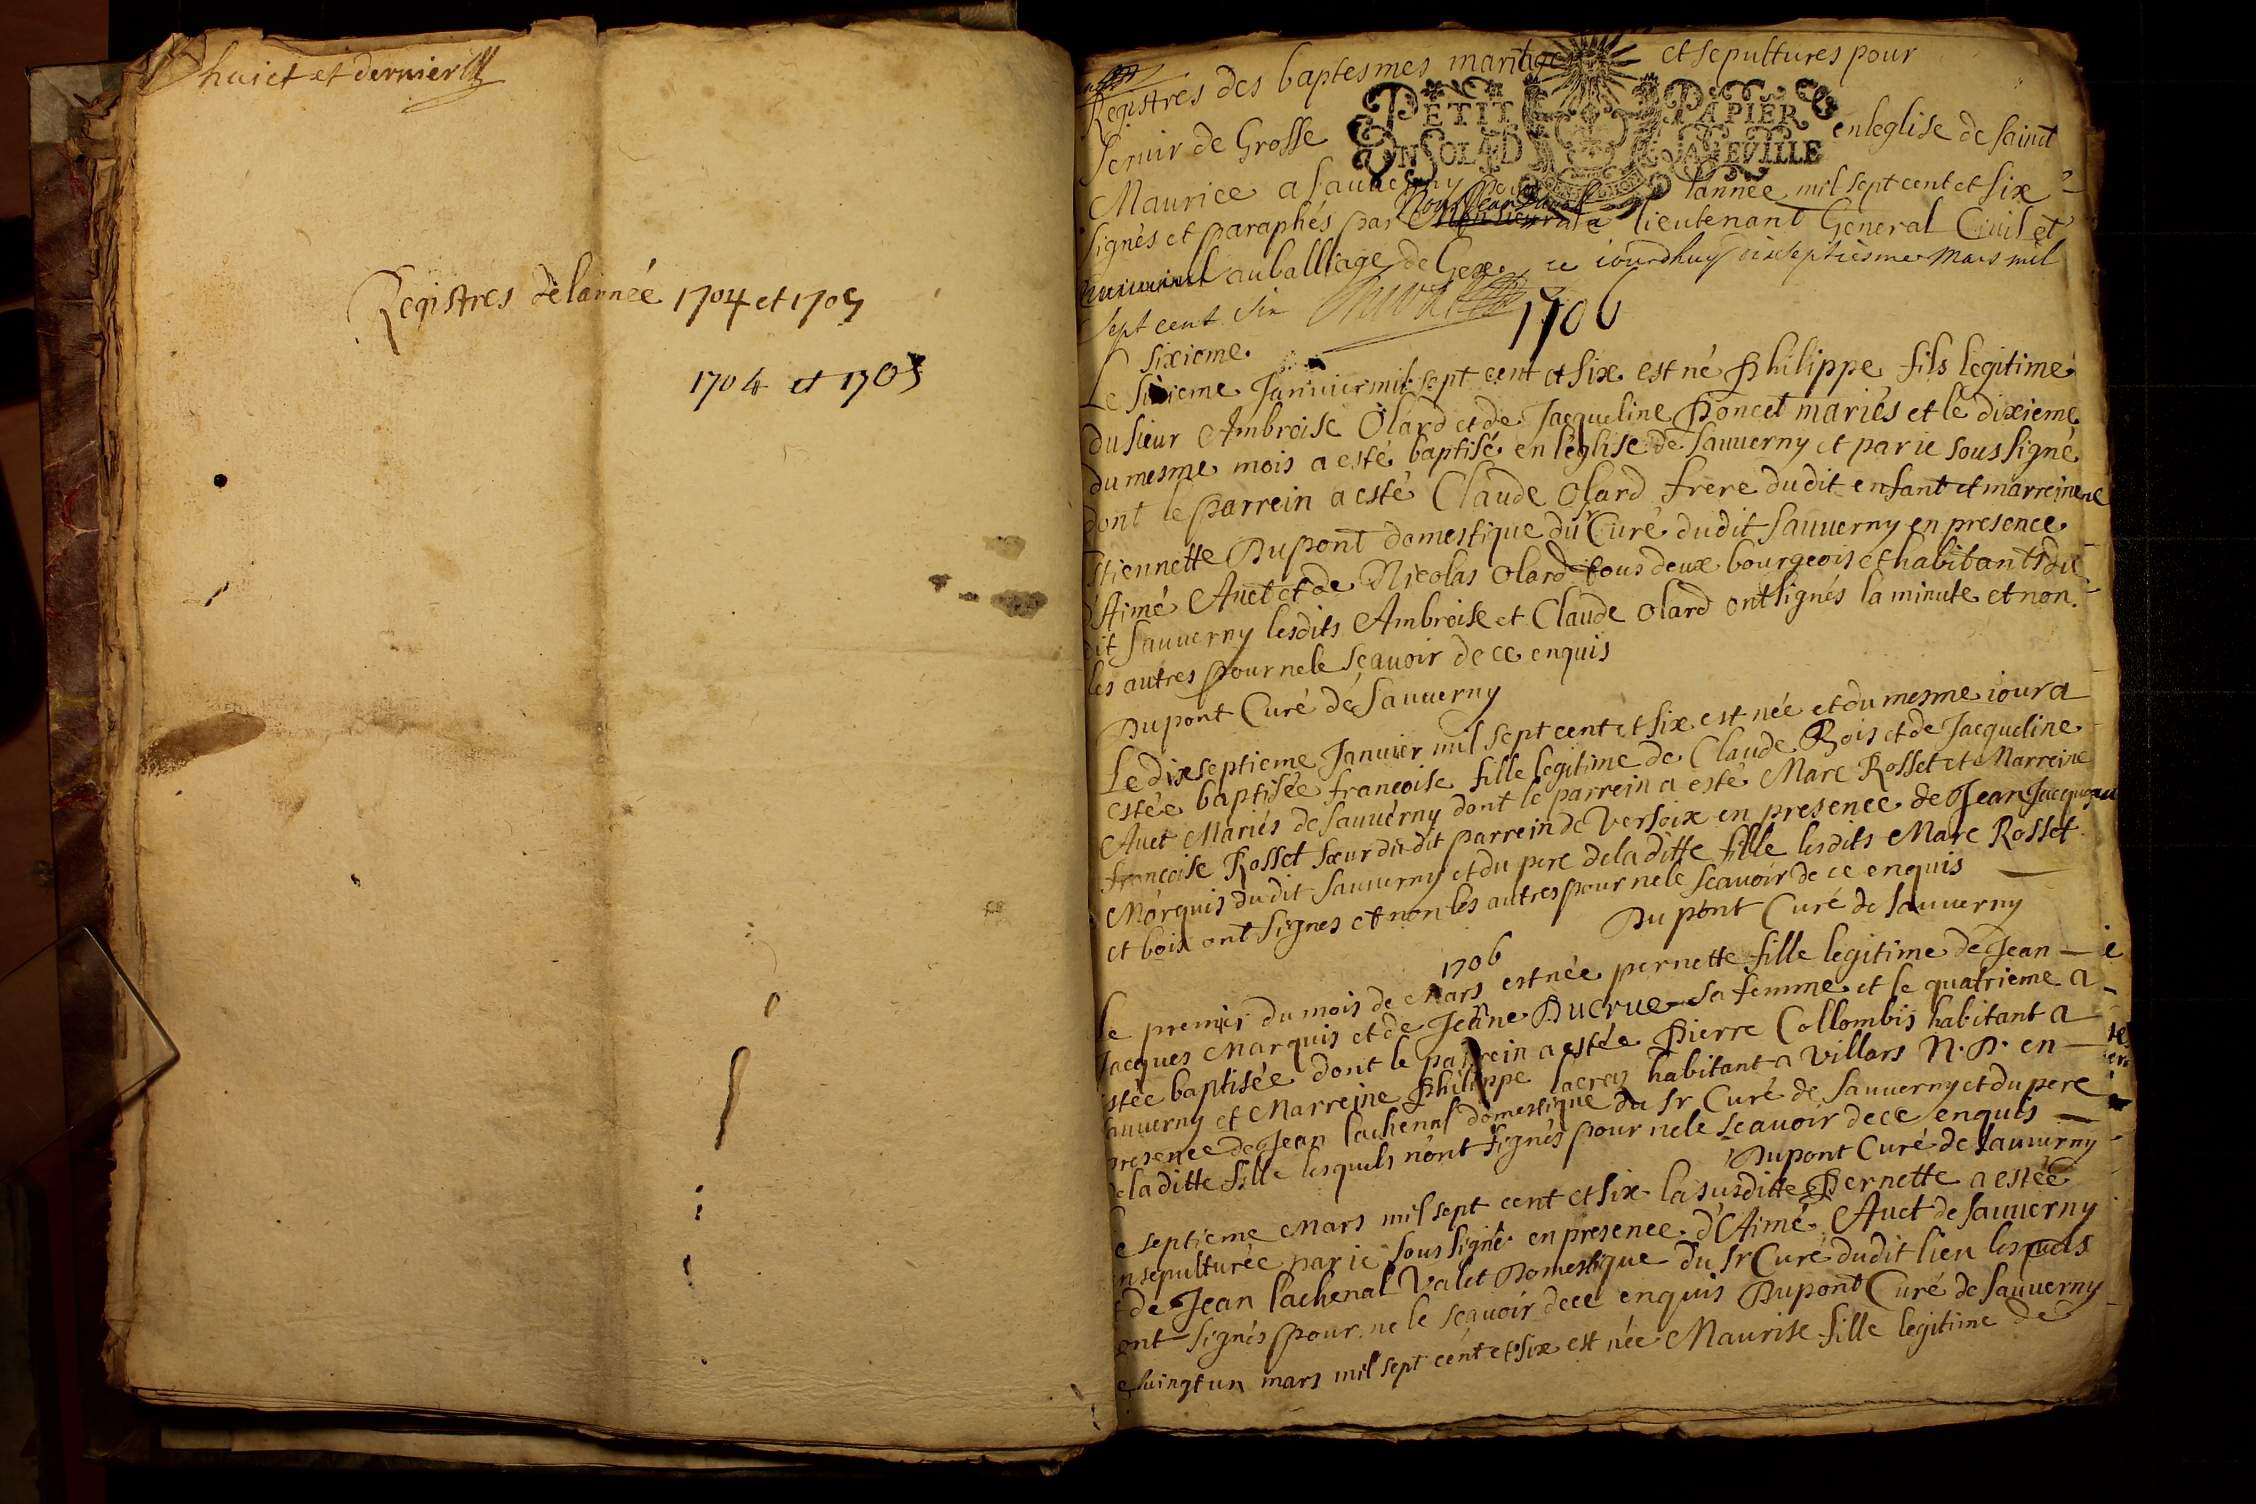 huict et dernier
Registres de lannée 1704 et 1705
1704 et 1705
Registres des baptesmes mariages et sepultures pour
PETIT PAPIER
UN SOL 4 D LA FEUILLE
servir de Grosse en leglise de saint
Maurice a sauverny pour lannée mil sept cent et six
signés et paraphés par Nous lieutenant General Civil et
Criminel au balliage de Gex ce iourdhuy dixseptiesme Mars mil
sept cent six
1706
sixieme
Le sixieme Janvier mil sept cent et six est né Philippe fils legitime
du sieur Ambroise Olard et de Jacqueline Poncet mariés et le dixieme
du mesme mois a esté baptisé en léglise de Sauverny et par ie sous signé
dont le parrein a esté Claude Olard frere du dit enfant et marreine
Etiennette Dupont domestique du Sr Curé dudit Sauverny en presence
d'Aimé Auet et de Nicolas Olard tous deux bourgeois et habitants du
dit Sauverny lesdits Ambroise et Claude Olard ont signés la minute et non
les autres pour ne le sçavoir de ce enquis
Dupont Curé de Sauverny
Le dixseptieme Janvier mil sept cent et six est née et du mesme iour a
estée baptisée francoise fille legitime de Claude Bois et de Jacqueline
Auet Mariés de Sauverny dont le parrein a esté Marc Rosset et Marreine
francoise Rosset sœur du dit parrein de Versoix en presence de Jean Jacques
Marquis du dit Sauverny et du pere de la ditte fille lesdits Marc Rosset
et bois ont signes et non les autres pour ne le sçavoir de ce enquis
Dupont Curé de Sauverny
1706
le premier du mois de Mars est née pernette fille legitime de Jean
Jacques Marquis et de Jeane Ducrue sa femme et le quatrieme a
estée baptisée dont le parrein a estée Pierre Collombis habitant a
Sauverny et Marreine Philippe lacroix habitant a Villars N. D. en
presence de Jean lachenal domestique du Sr Curé de Sauverny et du pere
de la ditte fille lesquels n'ont signés pour ne le sçavoir de ce enquis
Dupont Curé de Sauverny
Le septieme Mars mil sept cent et six la susditte Pernette a estée
ensepulturée par ie sous signé en presence d'Aimé Auet de sauverny
et de Jean lachenal Valet Domestique du Sr Curé dudit lieu lesquels
n'ont signés pour ne le sçavoir de ce enquis Dupont Curé de Sauverny
Le vingt un mars mil sept cent et six est née Maurise fille legitime de